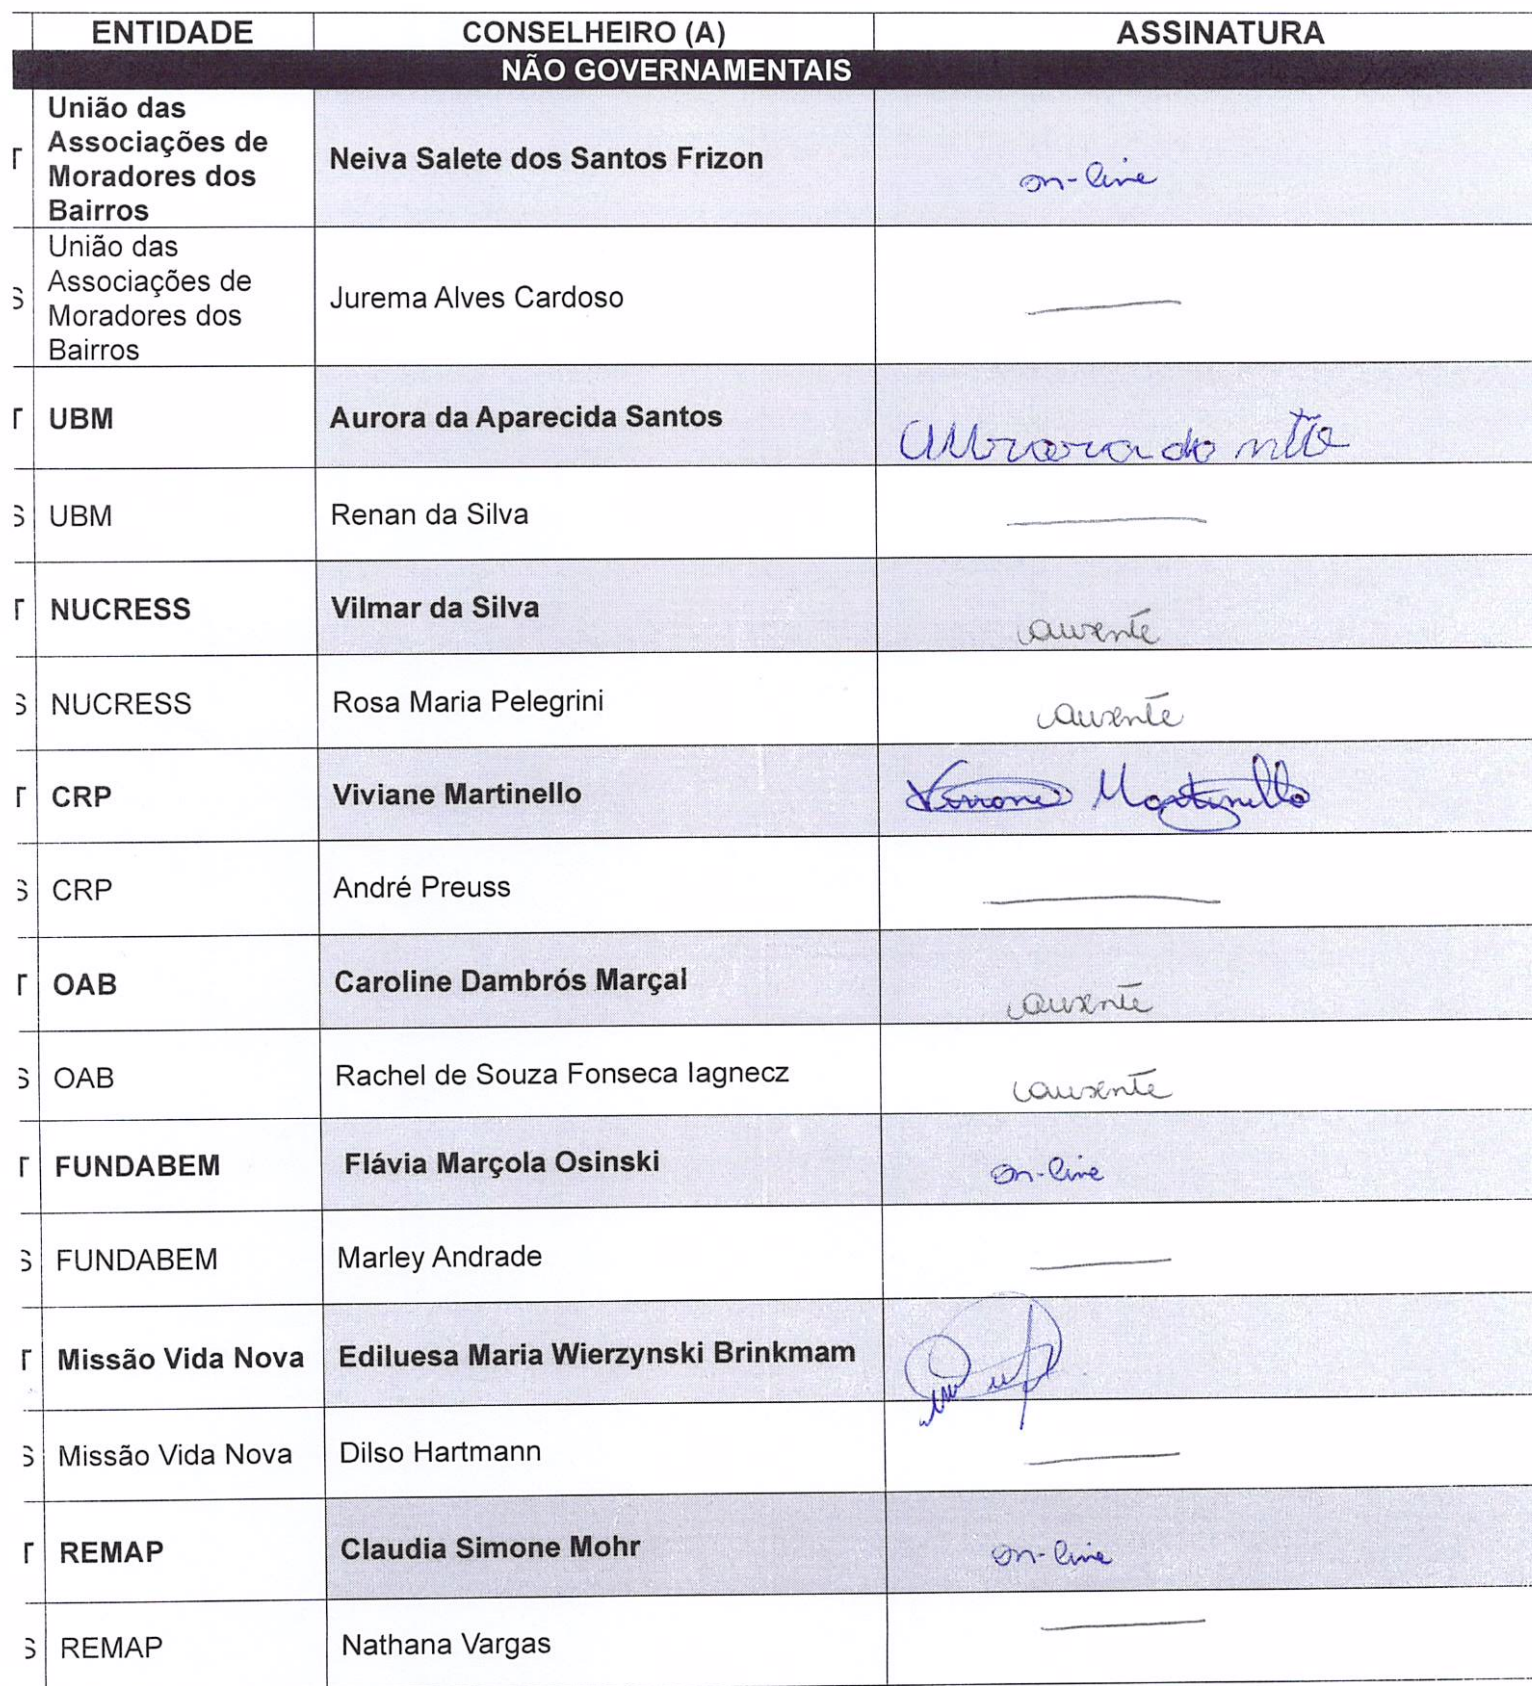 ENTIDADE CONSELHEIRO (A) ASSINATURA
NÃO GOVERNAMENTAIS
União das
Associações de
Moradores dos
Bairros
T Neiva Salete dos Santos Frizon on-line
União das
Associações de
Moradores dos
Bairros
S Jurema Alves Cardoso
T UBM Aurora da Aparecida Santos
S UBM Renan da Silva
T NUCRESS Vilmar da Silva ausente
S NUCRESS Rosa Maria Pelegrini ausente
T CRP Viviane Martinello Viviane Martinello
S CRP André Preuss
T OAB Caroline Dambrós Marçal ausente
S OAB Rachel de Souza Fonseca Iagnecz ausente
T FUNDABEM Flávia Marçola Osinski on-line
S FUNDABEM Marley Andrade
T Missão Vida Nova Ediluesa Maria Wierzynski Brinkmam
S Missão Vida Nova Dilso Hartmann
T REMAP Claudia Simone Mohr on-line
S REMAP Nathana Vargas